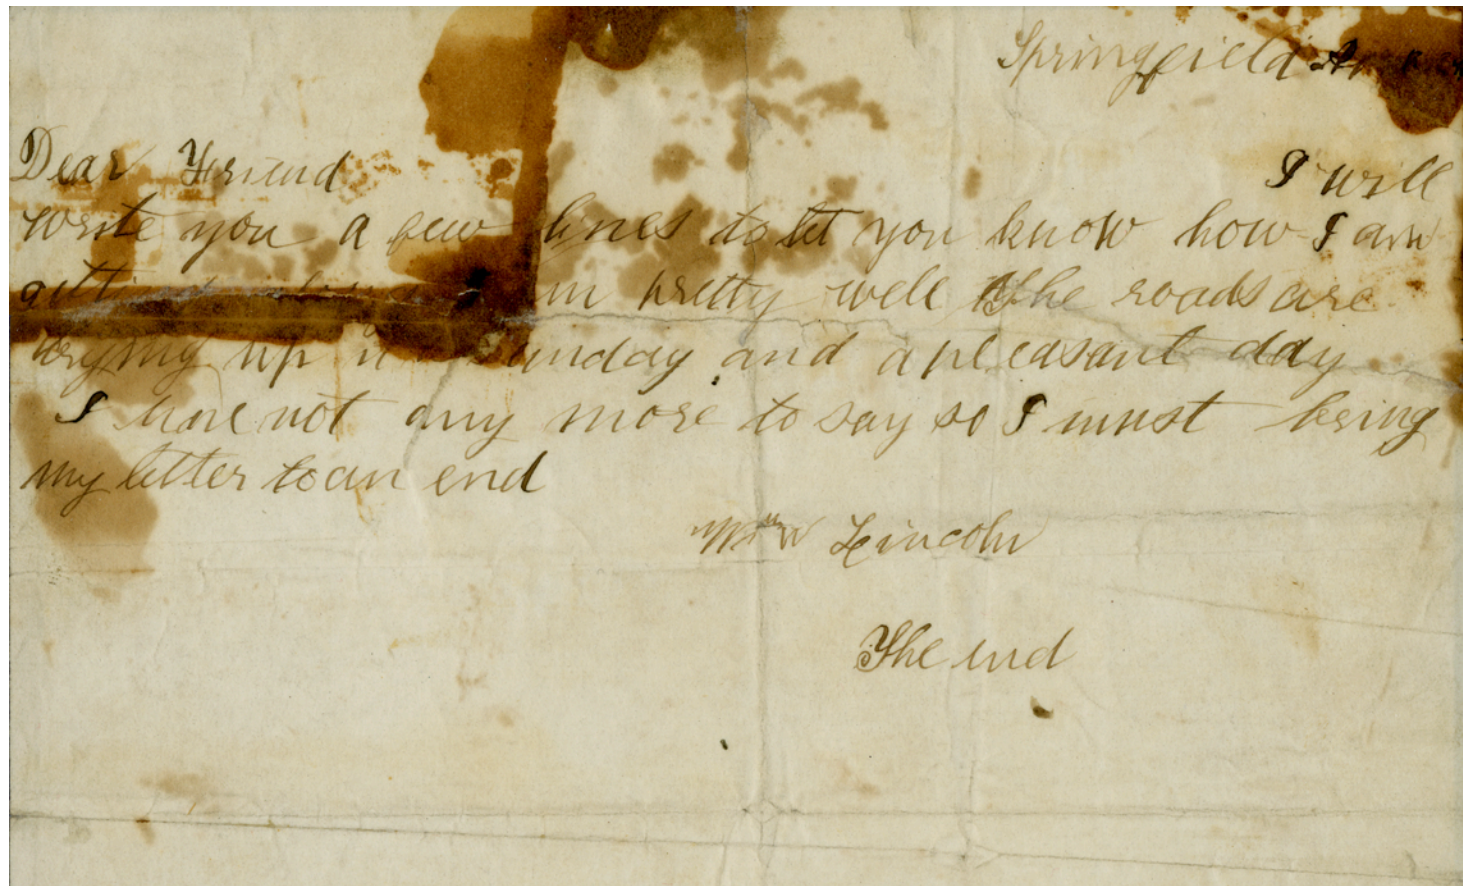 Springfield
Dear Friend
I will
write you a few lines to let you know how I am
getting along I am pretty well The roads are
drying up it is Sunday and a pleasant day
I have not any more to say so I must bring
my letter to an end
Wm W Lincoln
The end